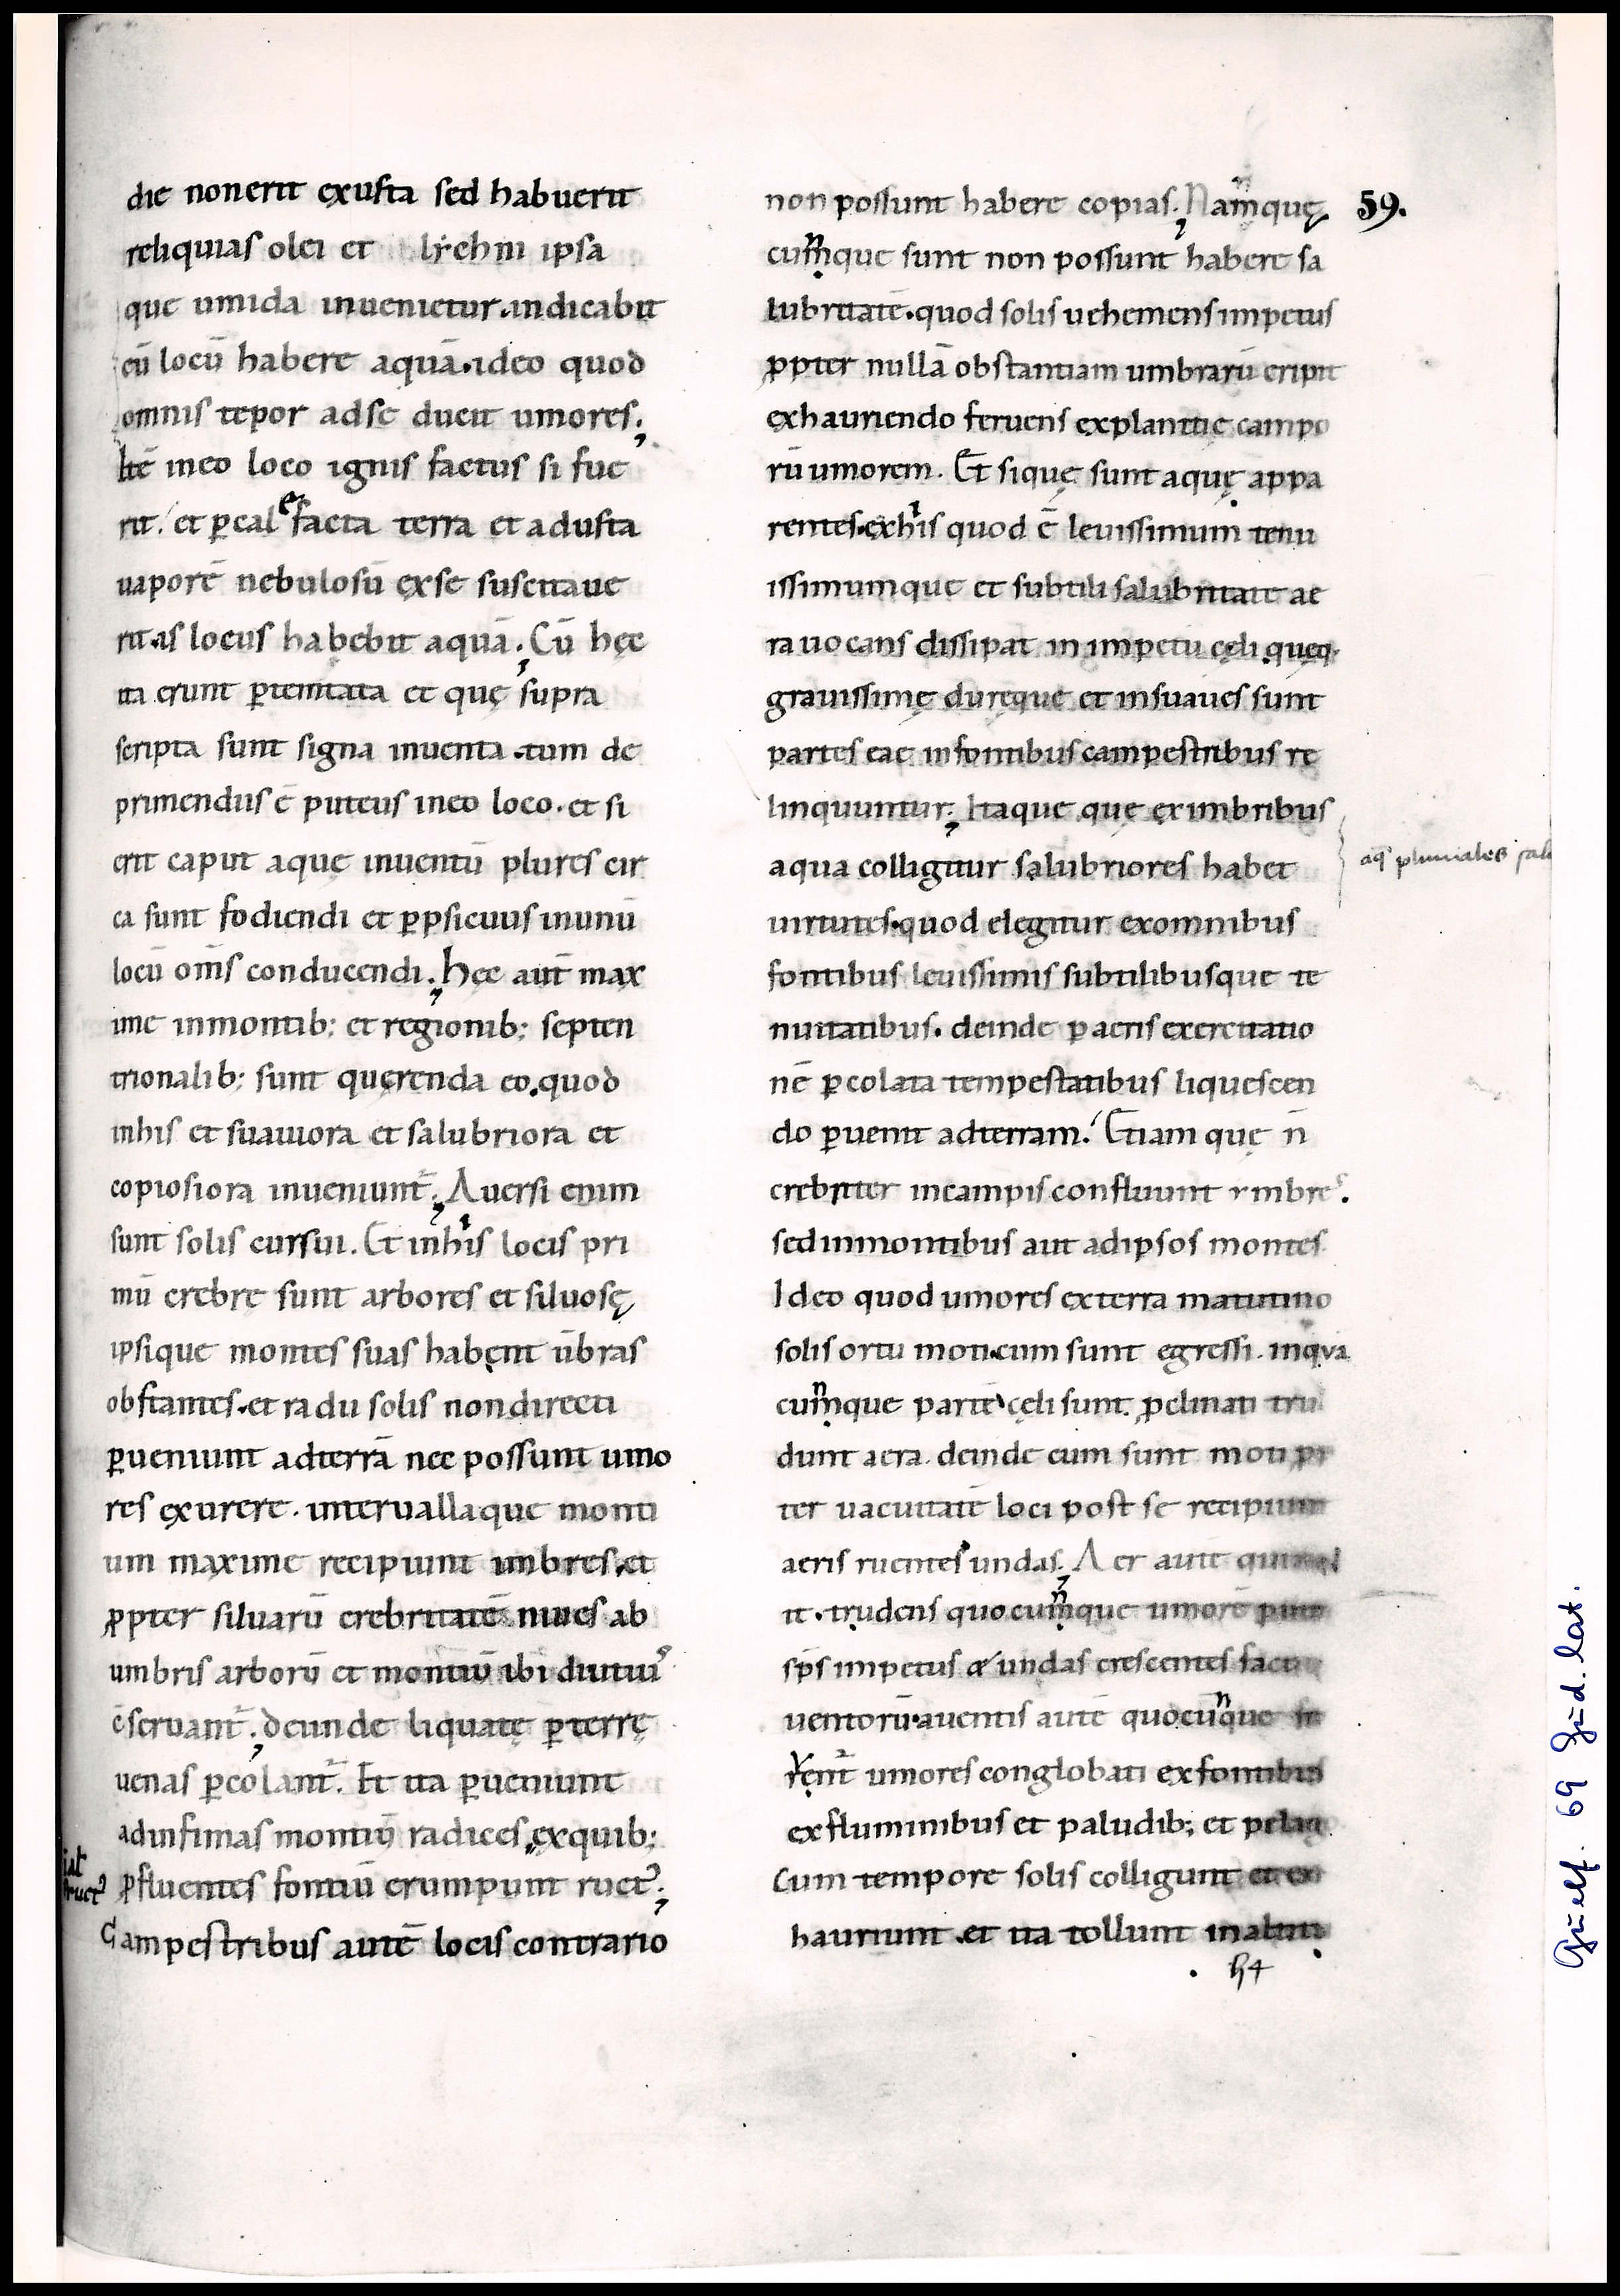 die non erit exusta sed habuerit
reliquias olei et lychni ipsa
que umida inuenietur. indicabit
eū locū habere aquā. ideo quod
omnis tepor ad se ducit umores.
Itē in eo loco ignis factus si fue
rit. et ꝑcalefacta terra et adusta
uaporē nebulosū ex se suscitaue
rit. is locus habebit aquā. Cū hęc
ita erunt ꝑtemtata et quę supra
scripta sunt signa inuenta. tum de
primendus ē puteus in eo loco. et si
erit caput aque inuentū plures cir
ca sunt fodiendi et ꝑpsicuus in unū
locū om̄s conducendi. hęc aut̄ max
ime in montib; et regionib; septen
trionalib; sunt quęrenda eo. quod
in his et suauiora et salubriora et
copiosiora inueniunt᷑. Auersi enim
sunt solis cursui. Et in his locis pri
mū crebrę sunt arbores et siluosę
ipsique montes suas habent ūbras
obstantes. et radii solis non directi
ꝑueniunt ad terrā nec possunt umo
res exurere. interuallaque monti
um maxime recipiunt imbres. et
ꝓpter siluarū crebritatē niues ab
umbris arborū et montiū ibi diutui᷒
ēseruant᷑. deinde liquatę ꝑ terrę
uenas ꝑcolant᷑. Et ita ꝑueniunt
ad infimas montiū radices. ex quib;
ꝓfluentes fontiū erumpunt ruct᷒.
Campestribus autē locis contrario
non possunt habere copias. Namque
cumque sunt non possunt habere sa
lubritatē. quod solis uehemens impetus
ꝓpter nullā obstantiam umbrarū eripit
exhauriendo feruens ex planitie campo
rū umorem. Et si quę sunt aquę appa
rentes. ex his quod ē leuissimum tenu
issimumque et subtili salubritate ae
ra uocans dissipat in impetū cęli quęq.
grauissimę duręque et insuaues sunt
partes eae in fontibus campestribus re
linquuntur. Itaque quę ex imbribus
aqua colligitur salubriores habet
uirtutes. quod elegitur ex omnibus
fontibus leuissimis subtilibusque te
nuitatibus. deinde ꝑ aeris exercitatio
nē ꝑcolata tempestatibus liquescen
do ꝑuenit ad terram. Etiam quę n̄
crebriter in campis confluunt ymbres.
sed in montibus aut ad ipsos montes
Ideo quod umores ex terra matutino
solis ortu moti. cum sunt egressi. in qua
cumque partē cęli sunt. ꝓclinati tru
dunt aera. deinde cum sunt moti
ter uacuitatē loci post se recipiunt
aeris ruentes undas. Aer autē
it. trudens quocumque umorē
sp̄s impetus & undas crescentes
uentorū. a uentis autē quocūque
rent᷑ umores conglobati ex fontibus
ex fluminibus et paludib; et pelag
Cum tempore solis colligunt et ex
hauriunt. et ita tollunt in
59.
aq̄ pluuiales
h4
Guelf. 69 Gud. lat.